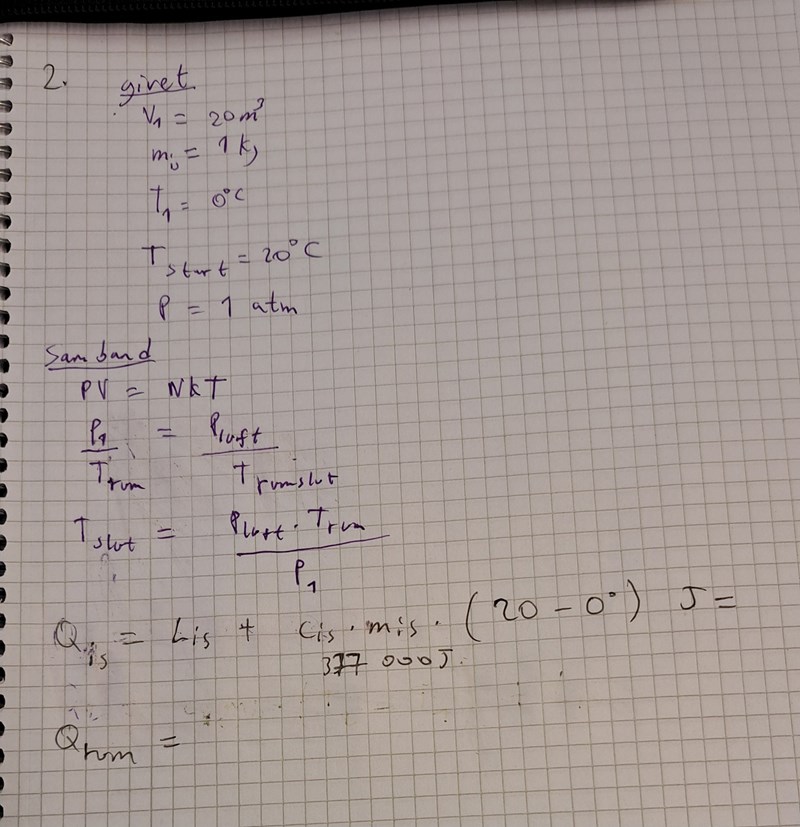 2. givet
V₁ = 20 m³
mis = 1 kg
T₁ = 0°C
Tstart = 20°C
P = 1 atm
Samband
PV = NkT
P₁/Trum = Pluft/Trumslut
Tslut = Pluft · Trum/P₁
Qis = Lis + Cis · mis · (20 - 0°) J =
377 000 J.
Qrum =